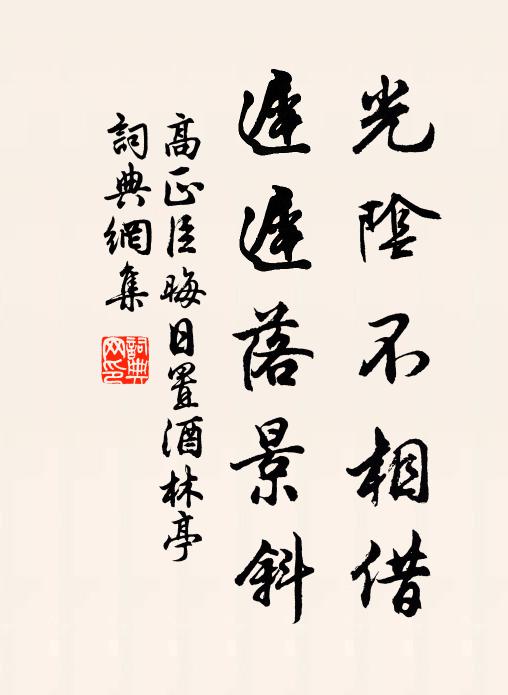 光陰不相借
遲遲落景斜
高正臣晦日置酒林亭
詞典網集
詞典网印